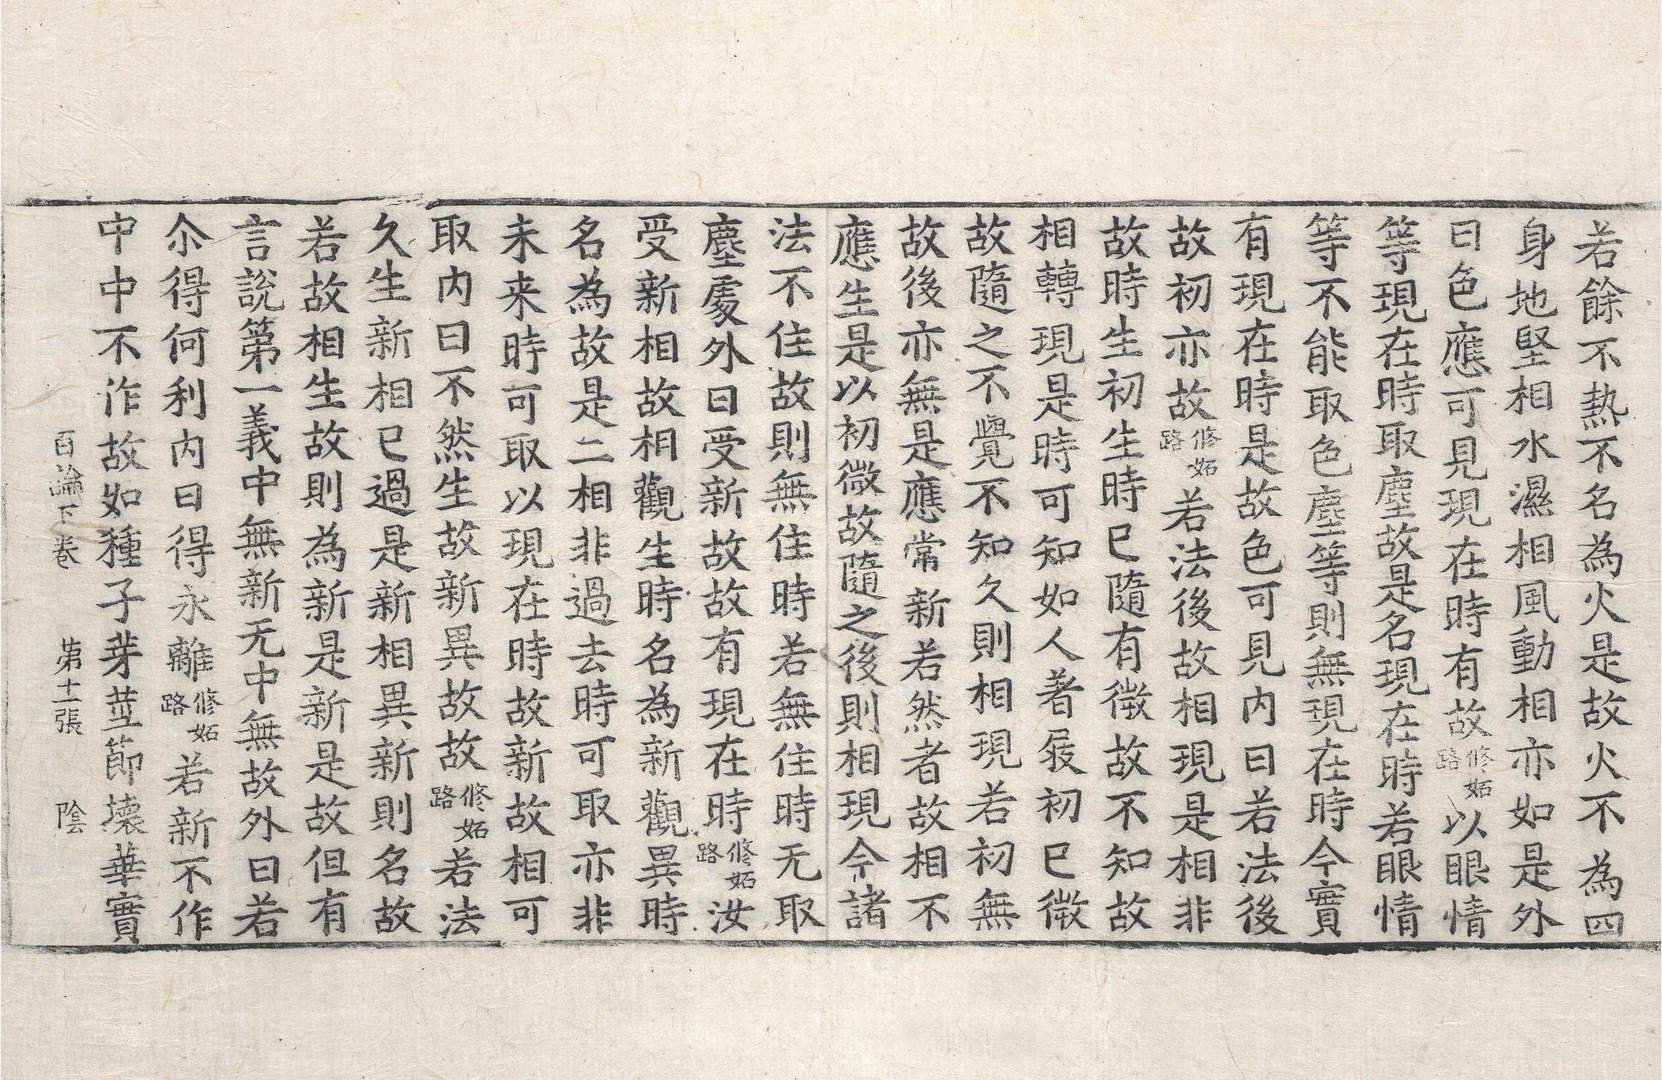 若餘不熱不名為火是故火不為四
身地堅相水濕相風動相亦如是外
曰色應可見現在時有故修妬路以眼情
等現在時取塵故是名現在時若眼情
等不能取色塵等則無現在時今實
有現在時是故色可見內曰若法後
故初亦故修妬路若法後故相現是相非
故時生初生時已隨有微故不知故
相轉現是時可知如人著屐初已微
故隨之不覺不知久則相現若初無
故後亦無是應常新若然者故相不
應生是以初微故隨之後則相現今諸
法不住故則無住時若無住時无取
塵處外曰受新故故有現在時修妬路汝
受新相故相觀生時名為新觀異時
名為故是二相非過去時可取亦非
未来時可取以現在時故新故相可
取內曰不然生故新異故故修妬路若法
久生新相已過是新相異新則名故
若故相生故則為新是新是故但有
言說第一義中無新无中無故外曰若
尒得何利內曰得永離修妬路若新不作
中中不作故如種子芽莖節壞華實
百論下卷　第十一張　陰